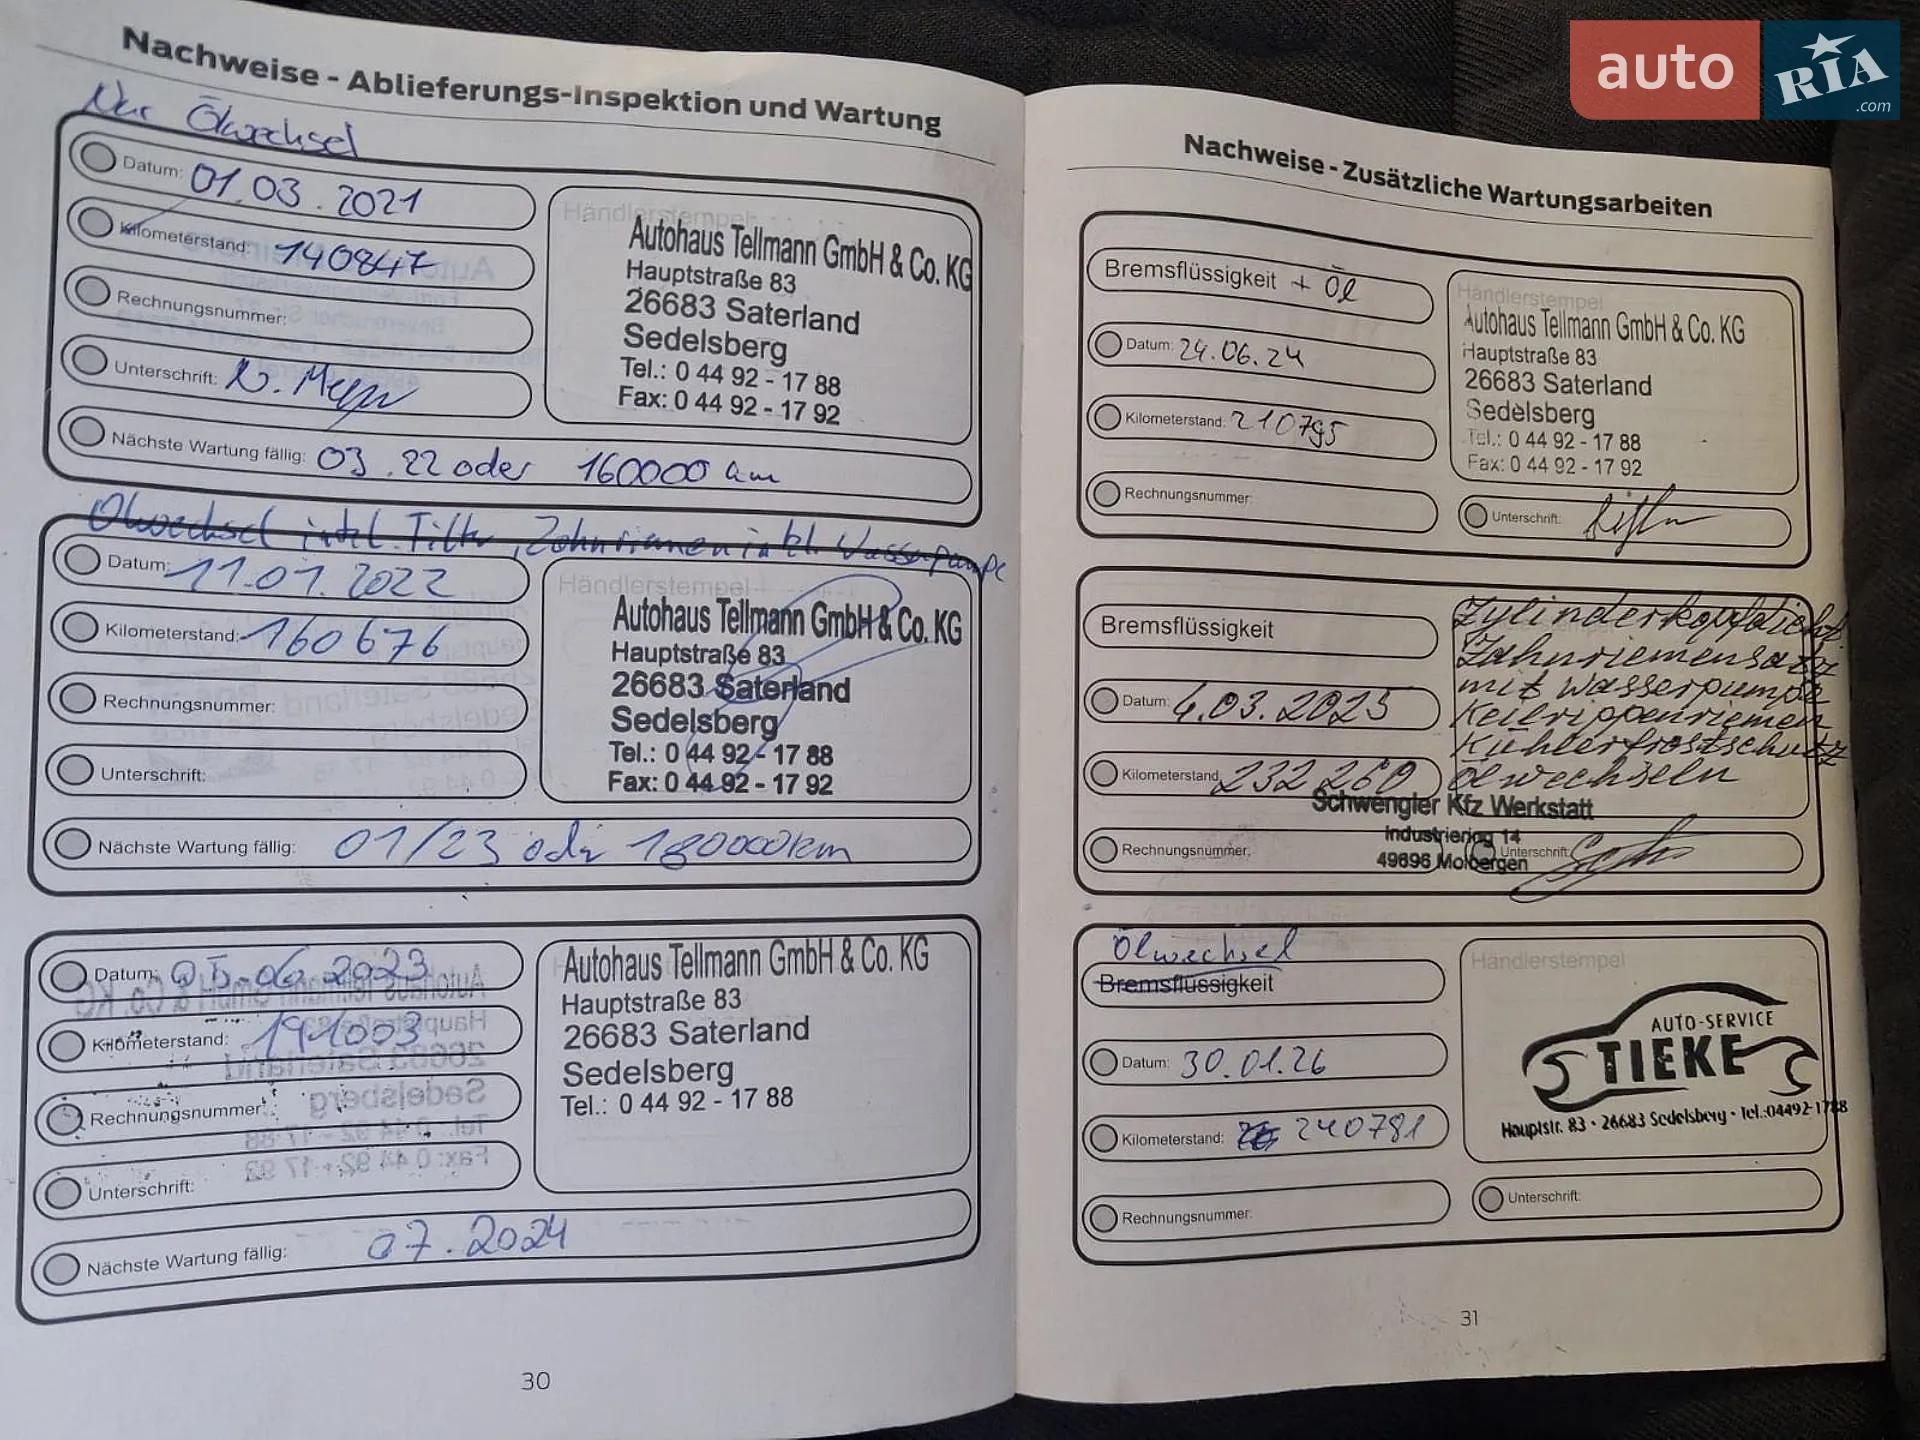 auto RIA.com
Nachweise - Ablieferungs-Inspektion und Wartung
Nur Ölwechsel
Datum: 01.03.2021
Kilometerstand: 140847
Rechnungsnummer:
Unterschrift:
Nächste Wartung fällig: 03.22 oder 160000 km
Händlerstempel
Autohaus Tellmann GmbH & Co. KG
Hauptstraße 83
26683 Saterland
Sedelsberg
Tel.: 0 44 92 - 17 88
Fax: 0 44 92 - 17 92
Ölwechsel inkl. Filter, Zahnriemen inkl. Wasserpumpe
Datum: 11.01.2022
Kilometerstand: 160676
Rechnungsnummer:
Unterschrift:
Nächste Wartung fällig: 01/23 oder 180000km
Händlerstempel
Autohaus Tellmann GmbH & Co. KG
Hauptstraße 83
26683 Saterland
Sedelsberg
Tel.: 0 44 92 - 17 88
Fax: 0 44 92 - 17 92
Datum: 05.06.2023
Kilometerstand: 191003
Rechnungsnummer:
Unterschrift:
Nächste Wartung fällig: 07.2024
Autohaus Tellmann GmbH & Co. KG
Hauptstraße 83
26683 Saterland
Sedelsberg
Tel.: 0 44 92 - 17 88
30
Nachweise - Zusätzliche Wartungsarbeiten
Bremsflüssigkeit + Öl
Datum: 24.06.24
Kilometerstand: 210795
Rechnungsnummer:
Händlerstempel
Autohaus Tellmann GmbH & Co. KG
Hauptstraße 83
26683 Saterland
Sedelsberg
Tel.: 0 44 92 - 17 88
Fax: 0 44 92 - 17 92
Unterschrift:
Bremsflüssigkeit
Datum: 4.03.2025
Kilometerstand 232 260
Rechnungsnummer:
Zahnriemensatz
mit Wasserpumpe
Keilrippenriemen
Kühlerfrostschutz
Ölwechseln
Schwengler Kfz Werkstatt
Industriering 14
49696 Molbergen
Unterschrift:
Ölwechsel
Bremsflüssigkeit
Datum: 30.01.26
Kilometerstand: 240781
Rechnungsnummer:
Händlerstempel
AUTO-SERVICE
TIEKE
Hauptstr. 83 • 26683 Sedelsberg • Tel.:04492-1788
Unterschrift:
31